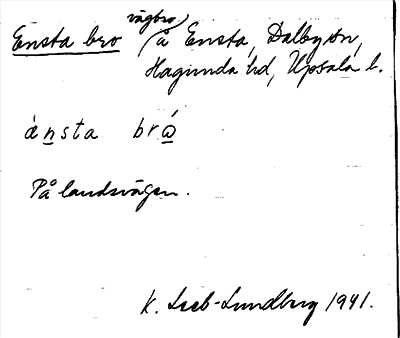 vägbro
Ensta bro å Ensta, Dalby sn,
Hagunda hd, Upsala l.
ànsta bró̲
På landsvägen.
K. Lieb-Lundberg 1941.